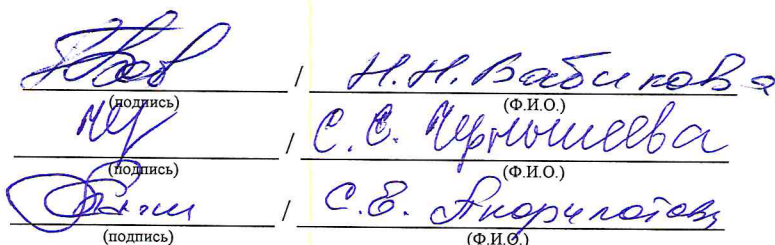 / Н.Н. Бабикова
(подпись) (Ф.И.О.)
/ С.С. Чернышева
(подпись) (Ф.И.О.)
/ С.Е.
(подпись) (Ф.И.О.)